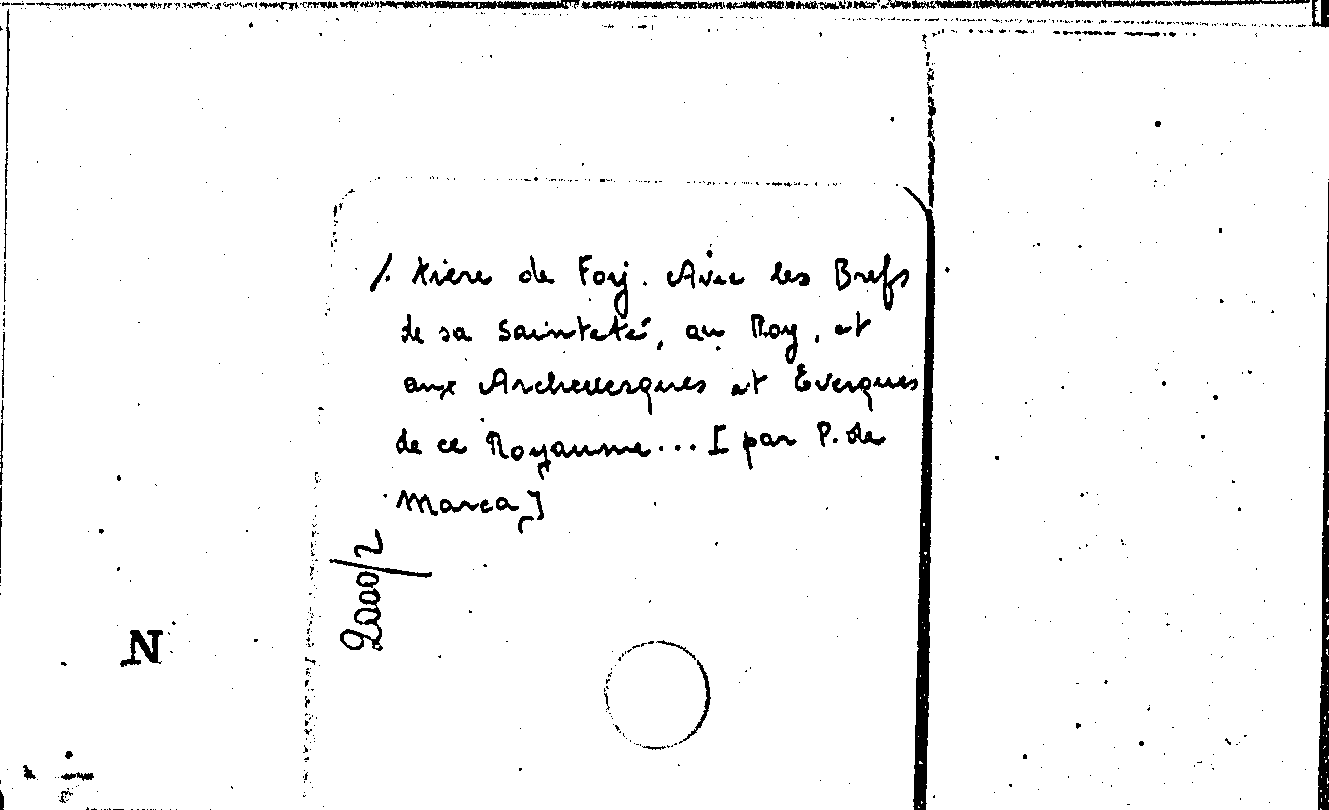 /. tière de Foy. Avec les Brefs
de sa Sainteté, au Roy, et
aux Archevesques et Evesques
de ce Royaume... [par P. de
Marca]
2000/2
N